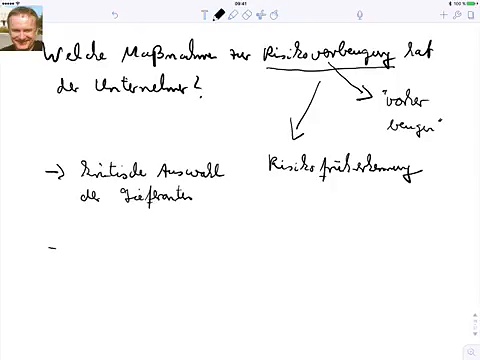 09:41
100 %
T
Welche Maßnahmen zur Risikovorbeugung hat
der Unternehmer?
"vorher
beugen"
Risikofrüherkennung
→ kritische Auswahl
der Lieferanten
-